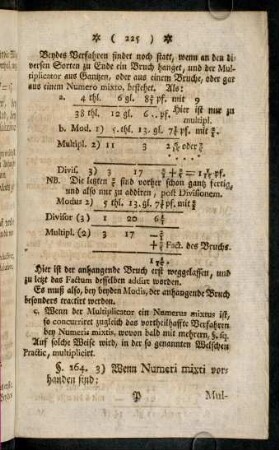 ( 225 )
Beydes Verfahren findet noch statt, wenn an den di-
versen Sorten zu Ende ein Bruch hanget, und der Mul-
tiplicator aus Gantzen, oder aus einem Bruche, oder gar
aus einem Numero mixto, bestehet. Als:
a. 4 thl. 6 gl. pf. mit 9
38 thl. 10 gl. 6 . . pf. Hier ist nur zu
multipl.
b. Mod. 1) 5. thl. 13. gl. pf. mit
Multipl. 2) 11 3 oder
Divis. 3) 3 17 pf.
NB. Die letzten sind vorher schon gantz fertig,
und also nur zu addiren, post Divisionem.
Modus 2) 5 thl. 13. gl. pf. mit
Divisor (3) 1 20
Multipl. (2) 3 17
Fact. des Bruchs.
Hier ist der anhangende Bruch erst weggelassen, und
zu letzt das Factum desselben addirt worden.
Es muß also, bey beyden Modis, der anhangende Bruch
besonders tractirt werden.
c. Wenn der Multiplicator ein Numerus mixtus ist,
so concurriret zugleich das vortheilhaffte Verfahren
bey Numeris mixtis, wovon bald mit mehren, §. sq.
Auf solche Weise wird, in der so genannten Welschen
Practic, multiplicirt.
§. 164. 3) Wenn Numeri mixti vor-
handen sind:
P Mul-